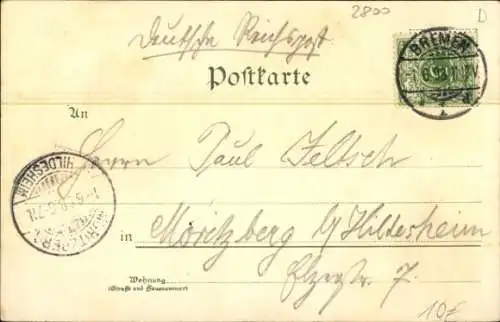 2800
D
Deutsche Reichspost
BREMEN
Postkarte
An
Herrn Paul Feltsch
HILDESHEIM
MORITZBERG
in Moritzberg b/Hildesheim
Elzerstr. 7.
Wohnung
(Straße und Hausnummer)
10€